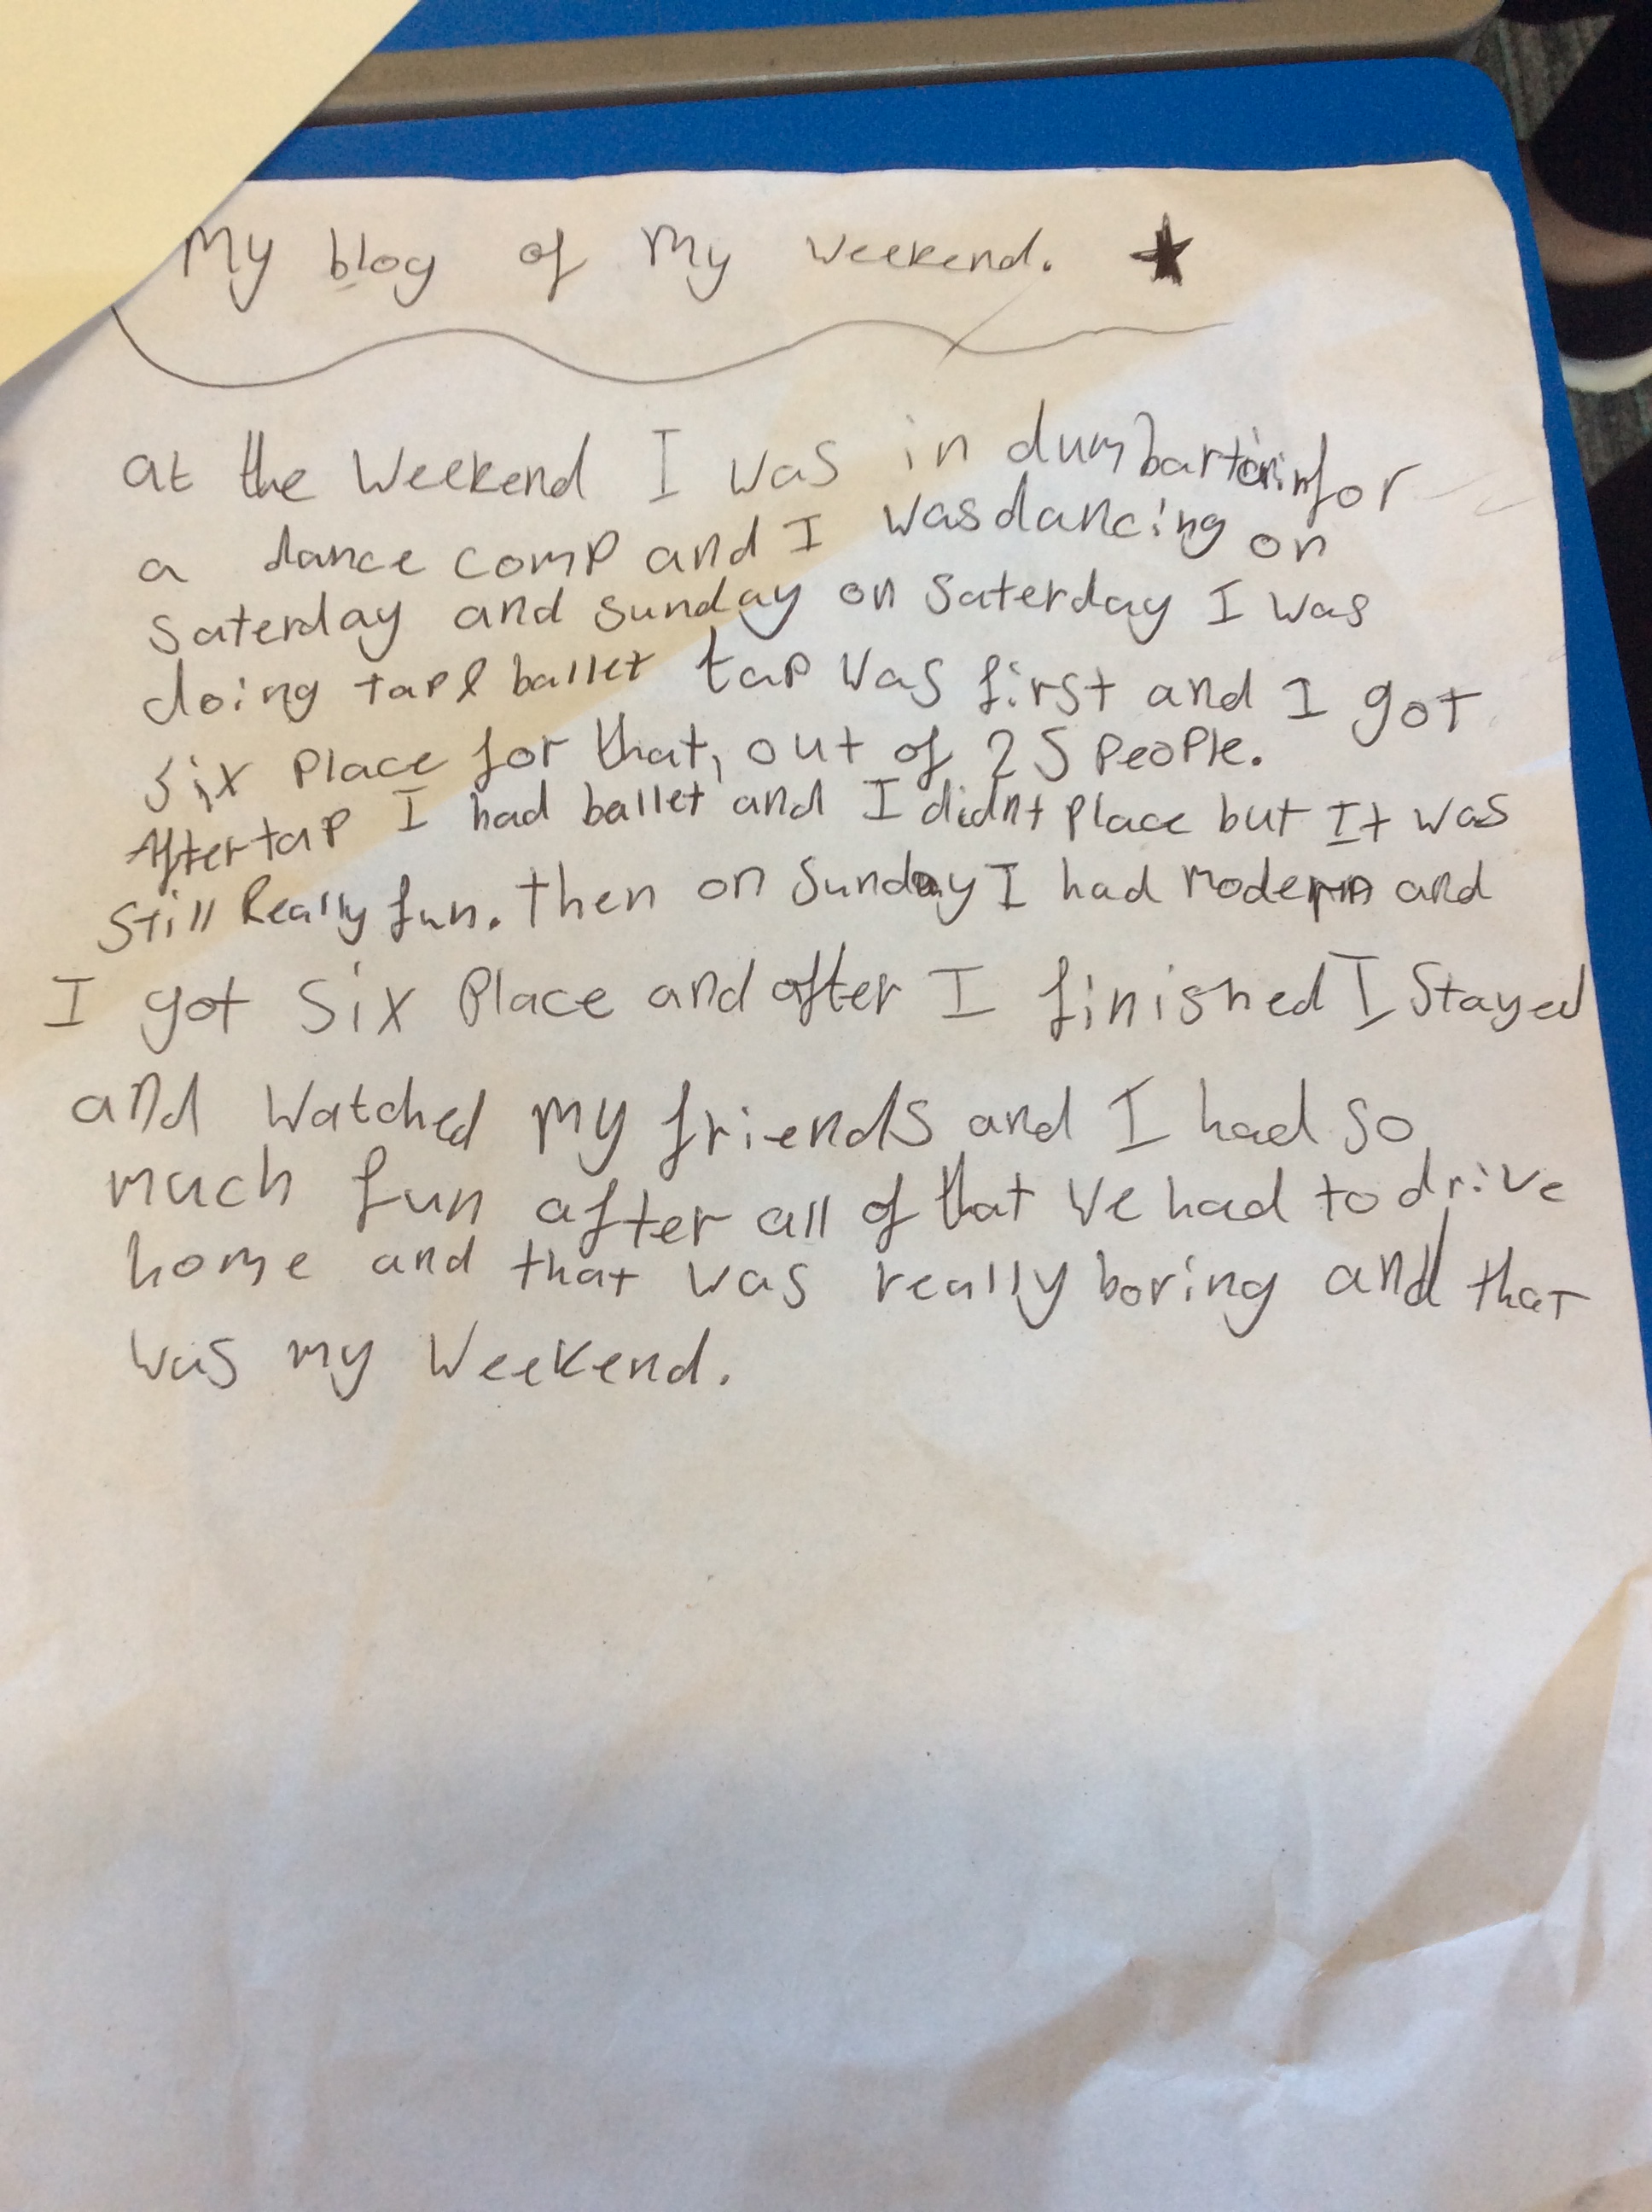 My blog of My weekend. ★
at the Weekend I was in dumbarton for
a dance comp and I was dancing on
saterday and sunday on saterday I was
doing tap & ballet tap was first and I got
six place for that, out of 25 people.
After tap I had ballet and I didnt place but It was
still Really fun. then on Sunday I had modern and
I got six place and after I finished I stayed
and watched my friends and I had so
much fun after all of that we had to drive
home and that was really boring and that
was my weekend.